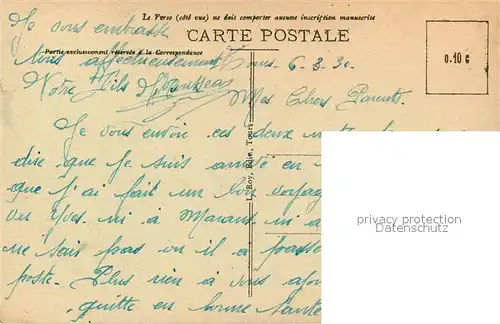 Le Verso (côté vue) ne doit comporter aucune inscription manuscrite
CARTE POSTALE
Partie exclusivement réservée à la Correspondance
0.10 c
L. Roy, Edit., Tours
Je vous embrasse
tous affectueusement
Notre fils
Tours 6.3.30.
Mes Chers Parents.
Je vous envoie ces deux
dire que je suis arrivé en
que j'ai fait un bon voyage
vu Yves ni à Marans ni à
ne sais pas où il a passé
poste. Plus rien à vous
quitte en bonne santé
privacy protection
www.ansichtskarten-center.de